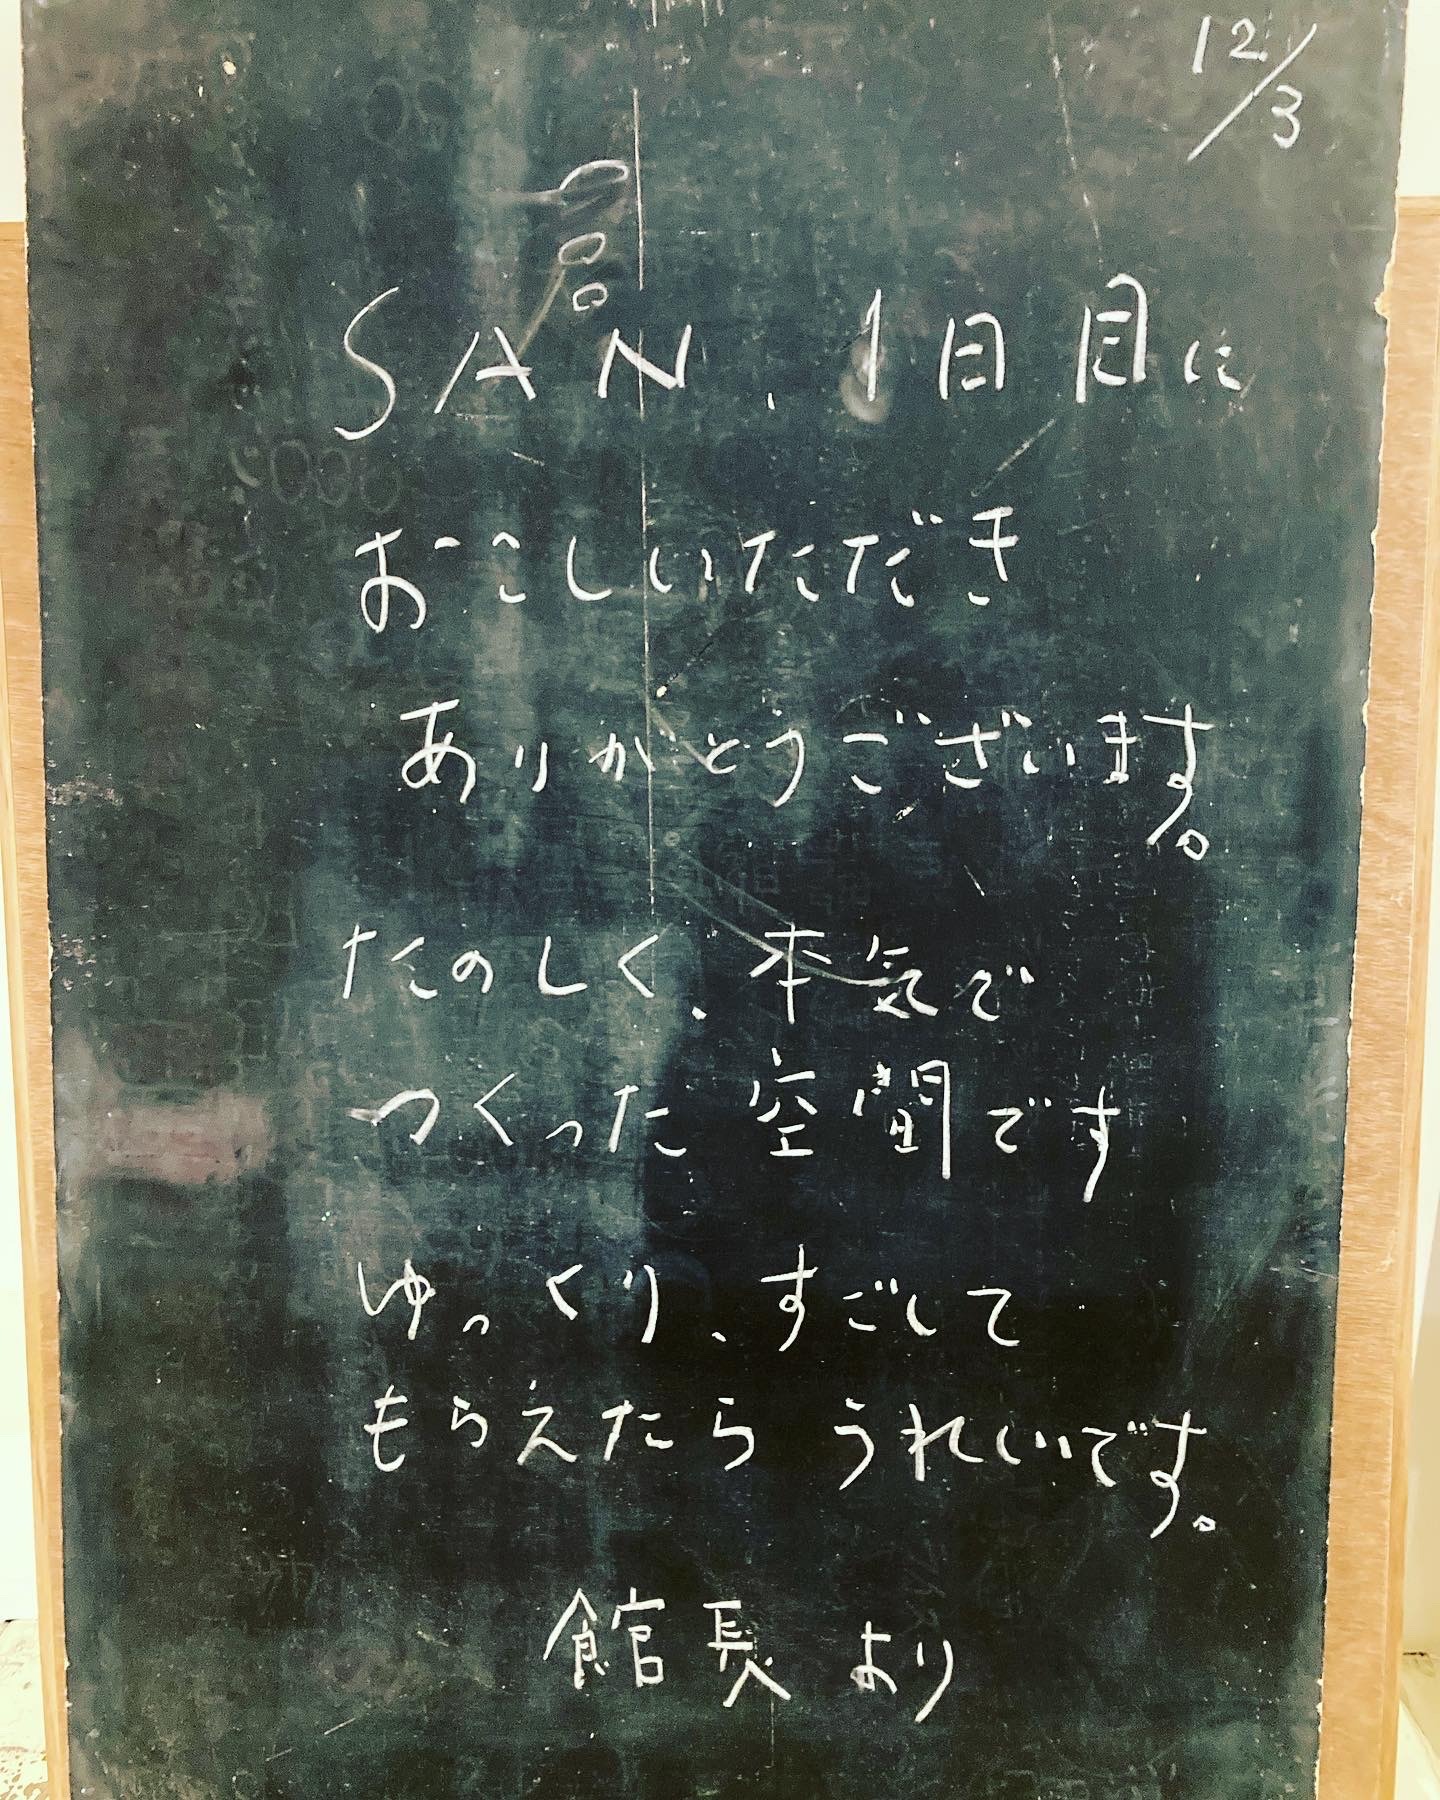 12/3
SAN、1日目に
おこしいただき
ありがとうございます。
たのしく、本気で
つくった空間です
ゆっくり、すごして
もらえたら うれしいです。
館長より